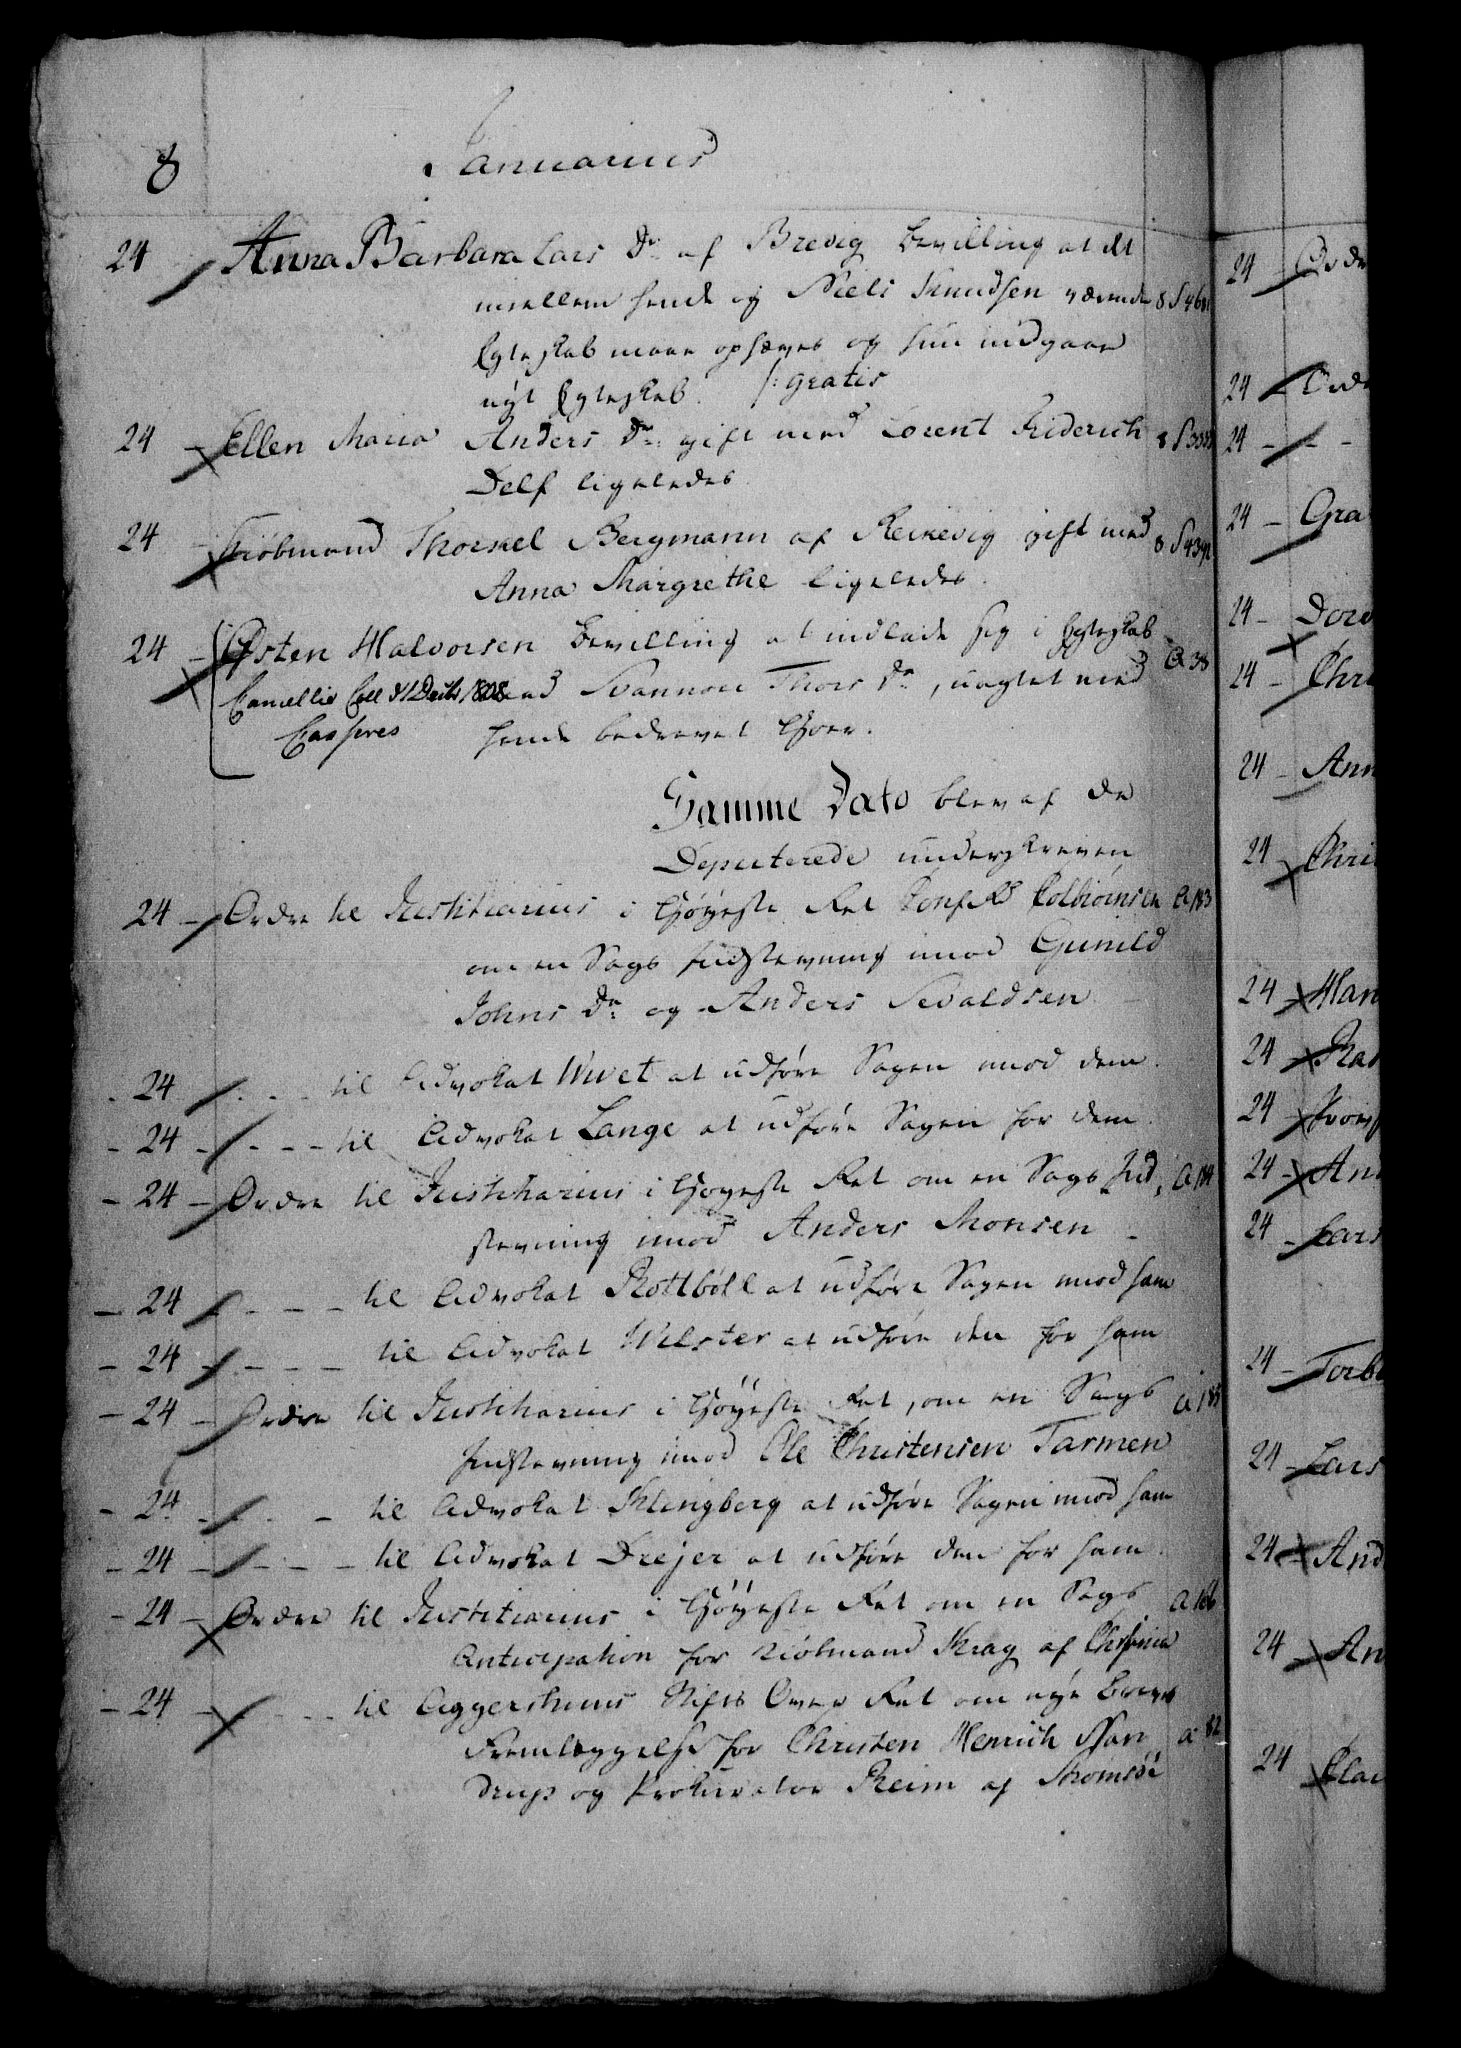 8 Januarius
24 Anna Barbara Lars Dr af Brevig Bevilling at det
mellem hende og Niels Knudsen værende
Egteskab maae ophæves og hun indgaae
nyt Egteskab. /: gratis
24 – Ellen Maria Anders Dr: gift med Lorent Friderich
Delf ligeledes
24 – Kiøbmand Thorkel Bergmann af Reikevig gift med
Anna Margrethe ligeledes.
24 – Østen Halvorsen Bevilling at indlade sig i Egteskab
med Svannou Thors Dr, uagtet med
hende bedrevet Hoer.
Samme Dato blev af de
Deputerede underskreven
24 – Ordre til Justitiarius i Høyeste Ret Conf. Rd Colbiörnsen
om en Sags Indstevning imod Gunild
Johns Dr: og Anders Sevaldsen
24 – – – til Advokat Wivet at udføre Sagen imod dem.
– 24 – – – – til Advokat Lange at udføre Sagen for dem.
– 24 – Ordre til Justitiarius i Høyeste Ret om en Sags Ind
stevning imod Anders Monsen –
– 24 – – – til Advokat Rottböll at udføre Sagen imod ham
– 24 – – – – til Advokat Wilster at udføre den for ham
– 24 – Ordre til Justitiarius i Høyeste Ret, om en Sags
Indstevning imod Ole Christensen Tarmen
– 24 – – – til Advokat Klingberg at udføre Sagen imod ham
– 24 – – – – til Advokat Drejer at udføre den for ham.
– 24 – Ordre til Justitiarius i Høyeste Ret om en Sags
Anticipation for Kiøbmand Krag af
– 24 – – – til Aggershuus Stifts Over Ret om nye Breves
Fremlæggelse for Christen Henrich
drup og Prokurator Reim af Tromsöe
24 –
24
24 – –
24 – Gra
24 –
24 – Chri
24 – Ann
24 Chri
24 – Han
24 – Ras
24
24 – An
24 – Lars
24 – Torb
24 – Lars
24 – And
24 – An
24